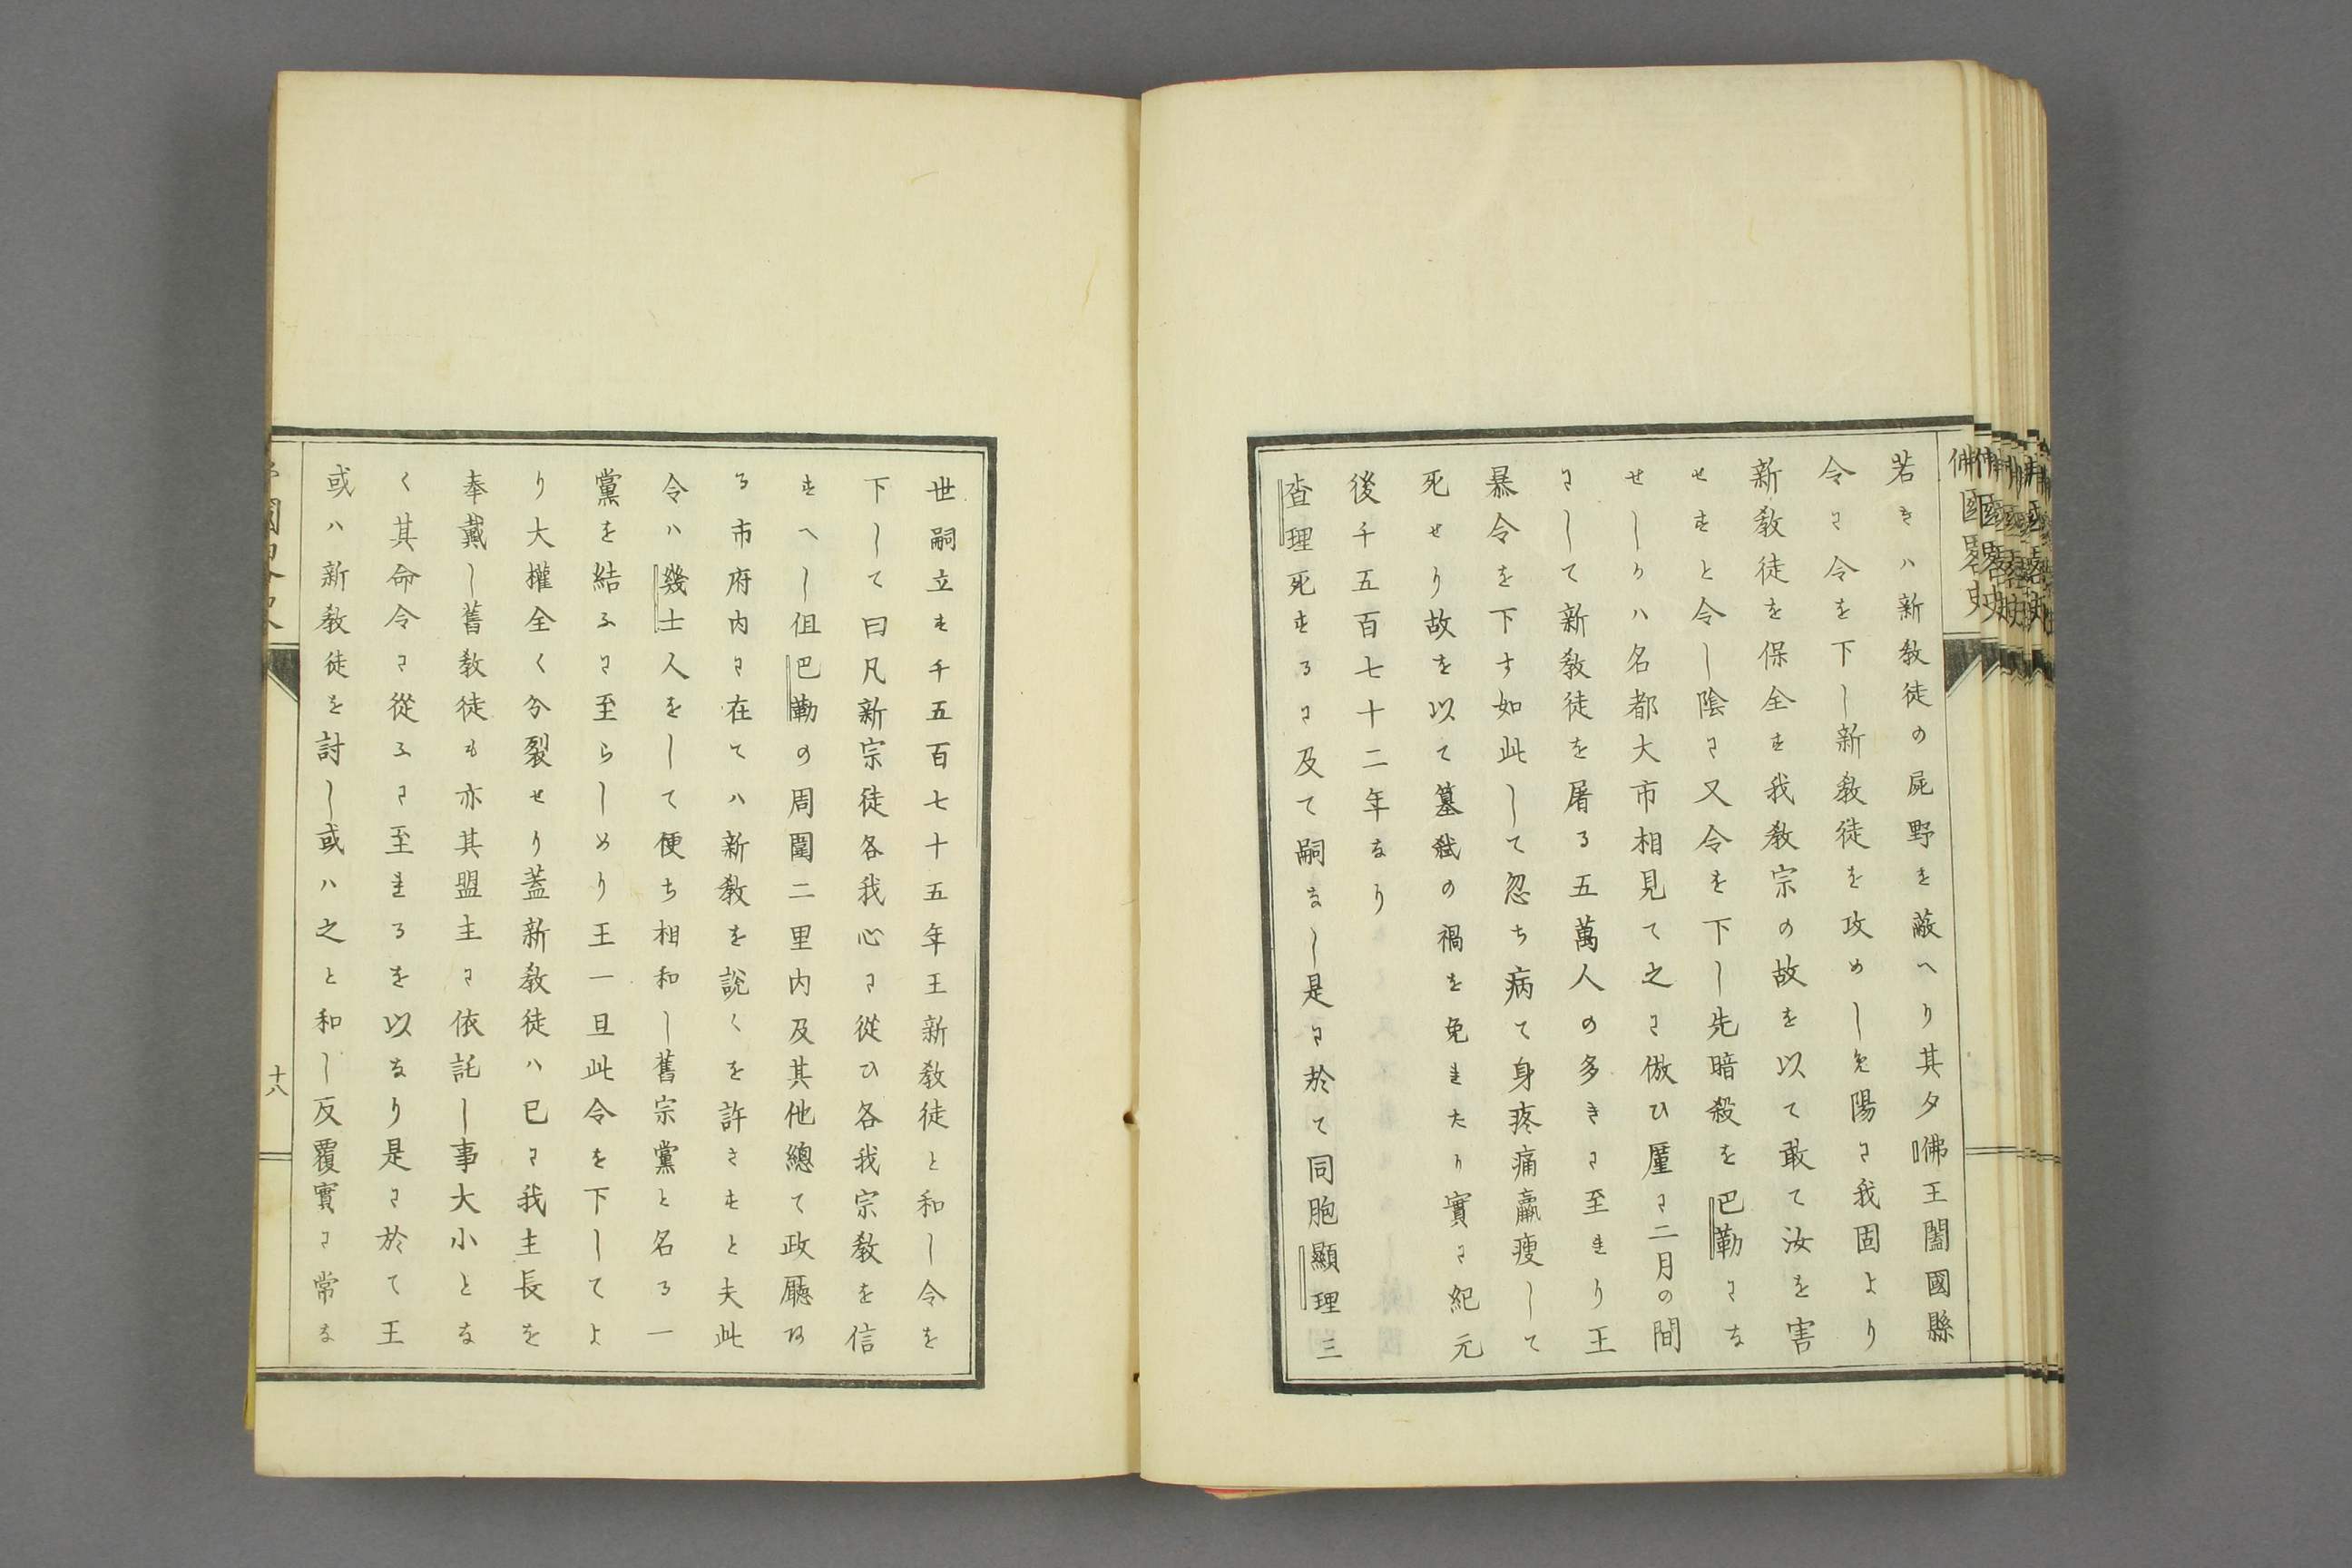 佛國畧史
若きハ新敎徒の屍野を蔽へり其夕佛王闔國縣
令に令を下し新敎徒を攻めしむ陽に我固より
新敎徒を保全す我敎宗の故を以て敢て汝を害
せすと令し陰に又令を下し先暗殺を巴勒にな
せしかハ名都大市相見て之に倣ひ厪に二月の間
にして新敎徒を屠る五萬人の多きに至れり王
暴令を下す如此して忽ち病て身疼痛羸痩して
死せり故を以て篡弑の禍を免れたり實に紀元
後千五百七十二年なり
査理死するに及て嗣なし是に於て同胞顯理三
世嗣立す千五百七十五年王新敎徒と和し令を
下して曰凡新宗徒各我心に從ひ各我宗敎を信
すへし但巴勒の周圍二里内及其他總て政廳あ
る市府内に在てハ新敎を説くを許さすと夫此
令ハ幾士人をして便ち相和し舊宗黨と名る一
黨を結ふに至らしめり王一旦此令を下してよ
り大權全く分裂せり蓋新敎徒ハ已に我主長を
奉戴し舊敎徒も亦其盟主に依託し事大小とな
く其命令に從ふに至れるを以なり是に於て王
或ハ新敎徒を討し或ハ之と和し反覆實に常な
十八